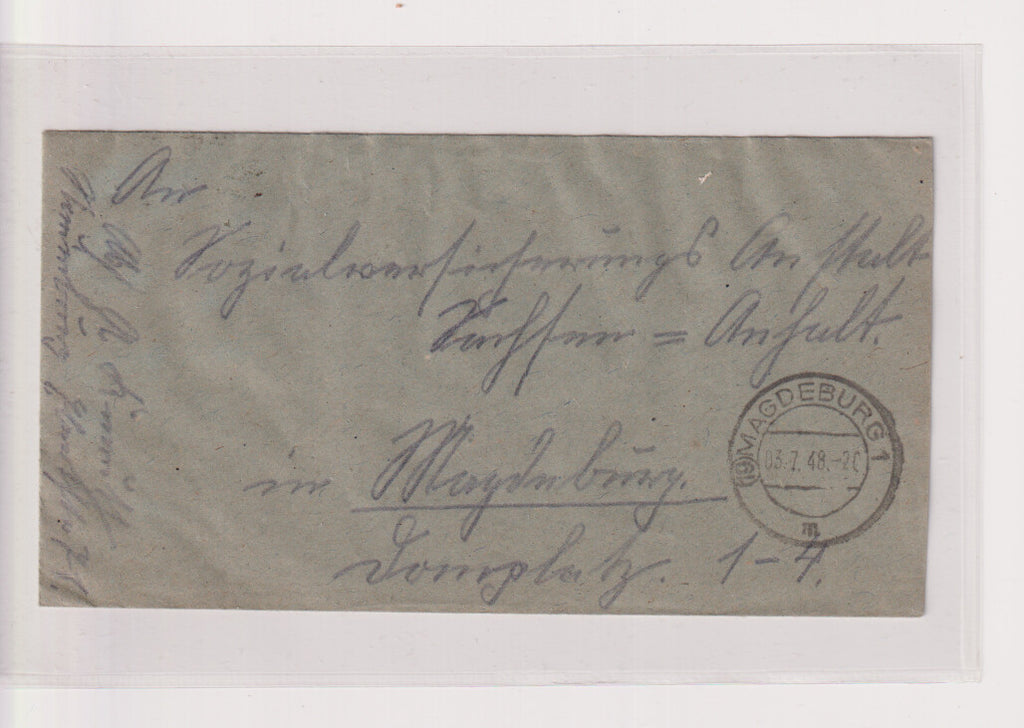 An
Sozialversicherungs Anstalt
Sachsen = Anhalt.
in Magdeburg.
Domplatz. 1-4.
(19) MAGDEBURG 1
03.7.48.-20
m